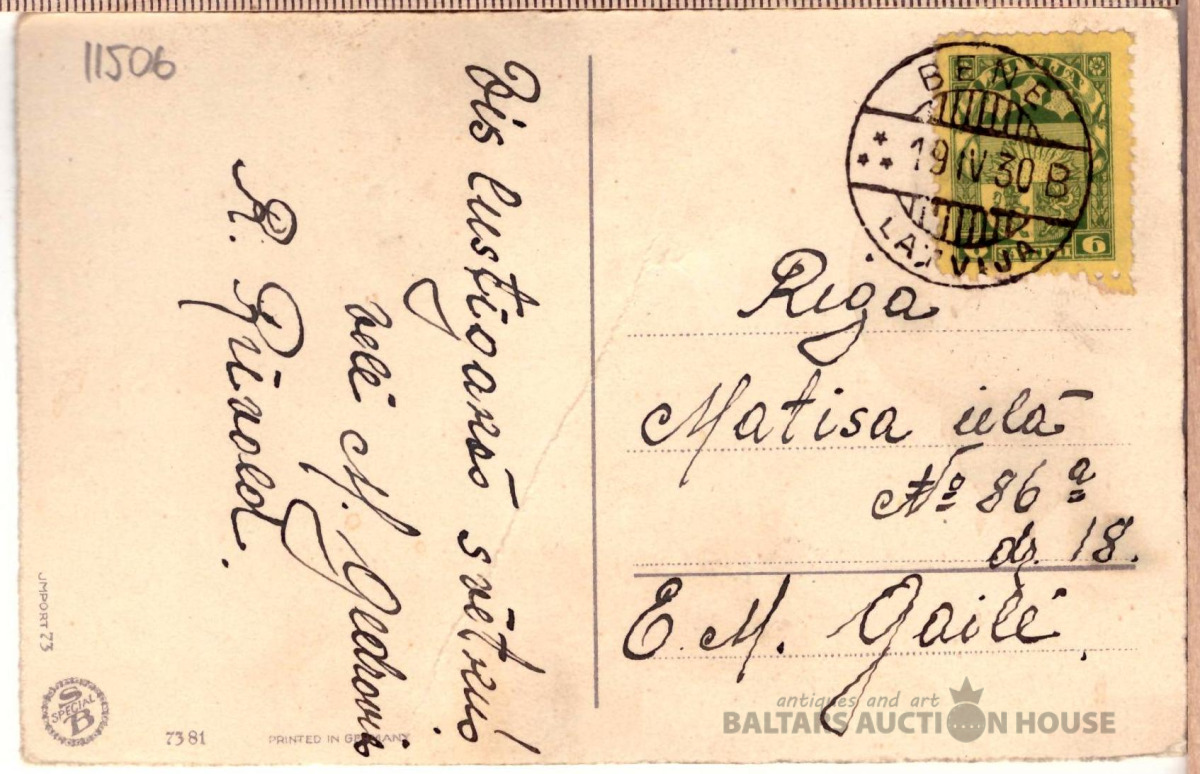 11506
svētkus!
velē M.
R.
BENE
19 IV 30 B
LATVIJA
LATVIJA
6
Riga
Matisa ielā
№ 86 a
dz. 18.
E. M. Gailē.
JMPORT 73
SPECIAL
SB
7381
PRINTED IN GERMANY
antiques and art
BALTARS AUCTION HOUSE